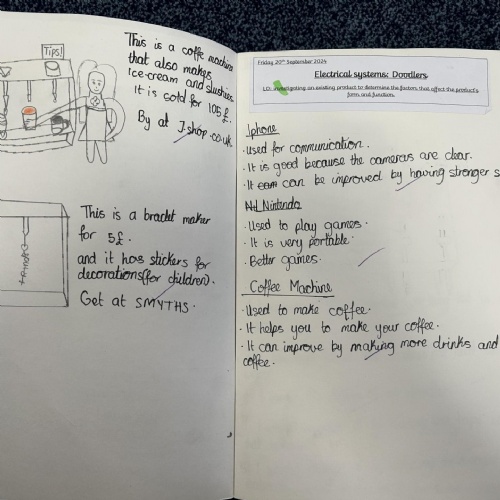 Tips!
This is a coffe machine
that also makes
ice-cream and slushies.
It is sold for 105£.
By at J-shop.co.uk.
This is a braclet maker
for 5£.
and it has stickers for
decorations(for children).
Get at SMYTHS.
Friday 20th September 2024
Electrical systems: Doodlers
LO: investigating an existing product to determine the factors that affect the product's
form and function.
Iphone
· Used for communication.
· It is good because the cameras are clear.
· It can be improved by having stronger s
Nintendo
· Used to play games.
· It is very portable.
· Better games.
Coffee Machine
· Used to make coffee.
· It helps you to make your coffee.
· It can improve by making more drinks and
coffee.